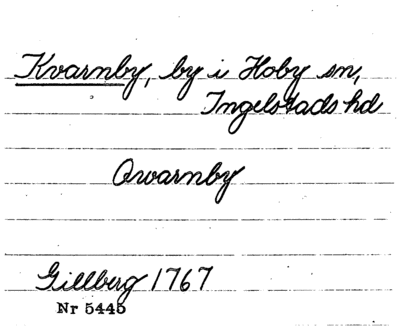 Kvarnby, by i Hoby sn,
Ingelstads hd
Qwarnby
Gillberg 1767
Nr 5445